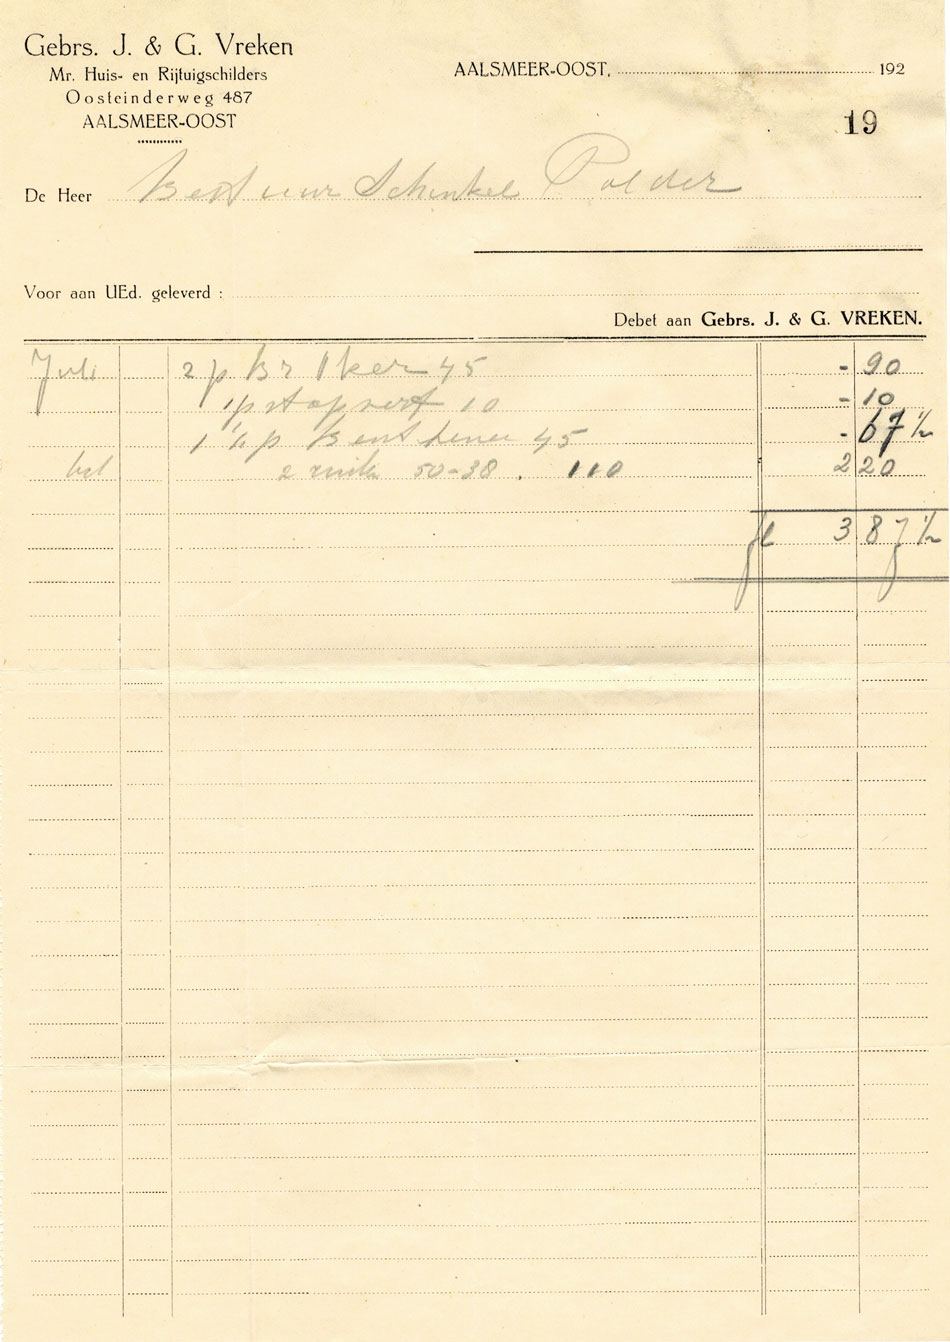 Gebrs. J. & G. Vreken
Mr. Huis- en Rijtuigschilders
Oosteinderweg 487
AALSMEER-OOST
AALSMEER-OOST, 192
19
De Heer Bestuur Schinkel Polder
Voor aan UEd. geleverd :
Debet aan Gebrs. J. & G. VREKEN.
Juli 2 p 45 - 90
1 p stopverf 10 - 10
1 ½ p 45 - 67 ½
2 ruit 50-38 . 110 2 20
fl 3 87 ½